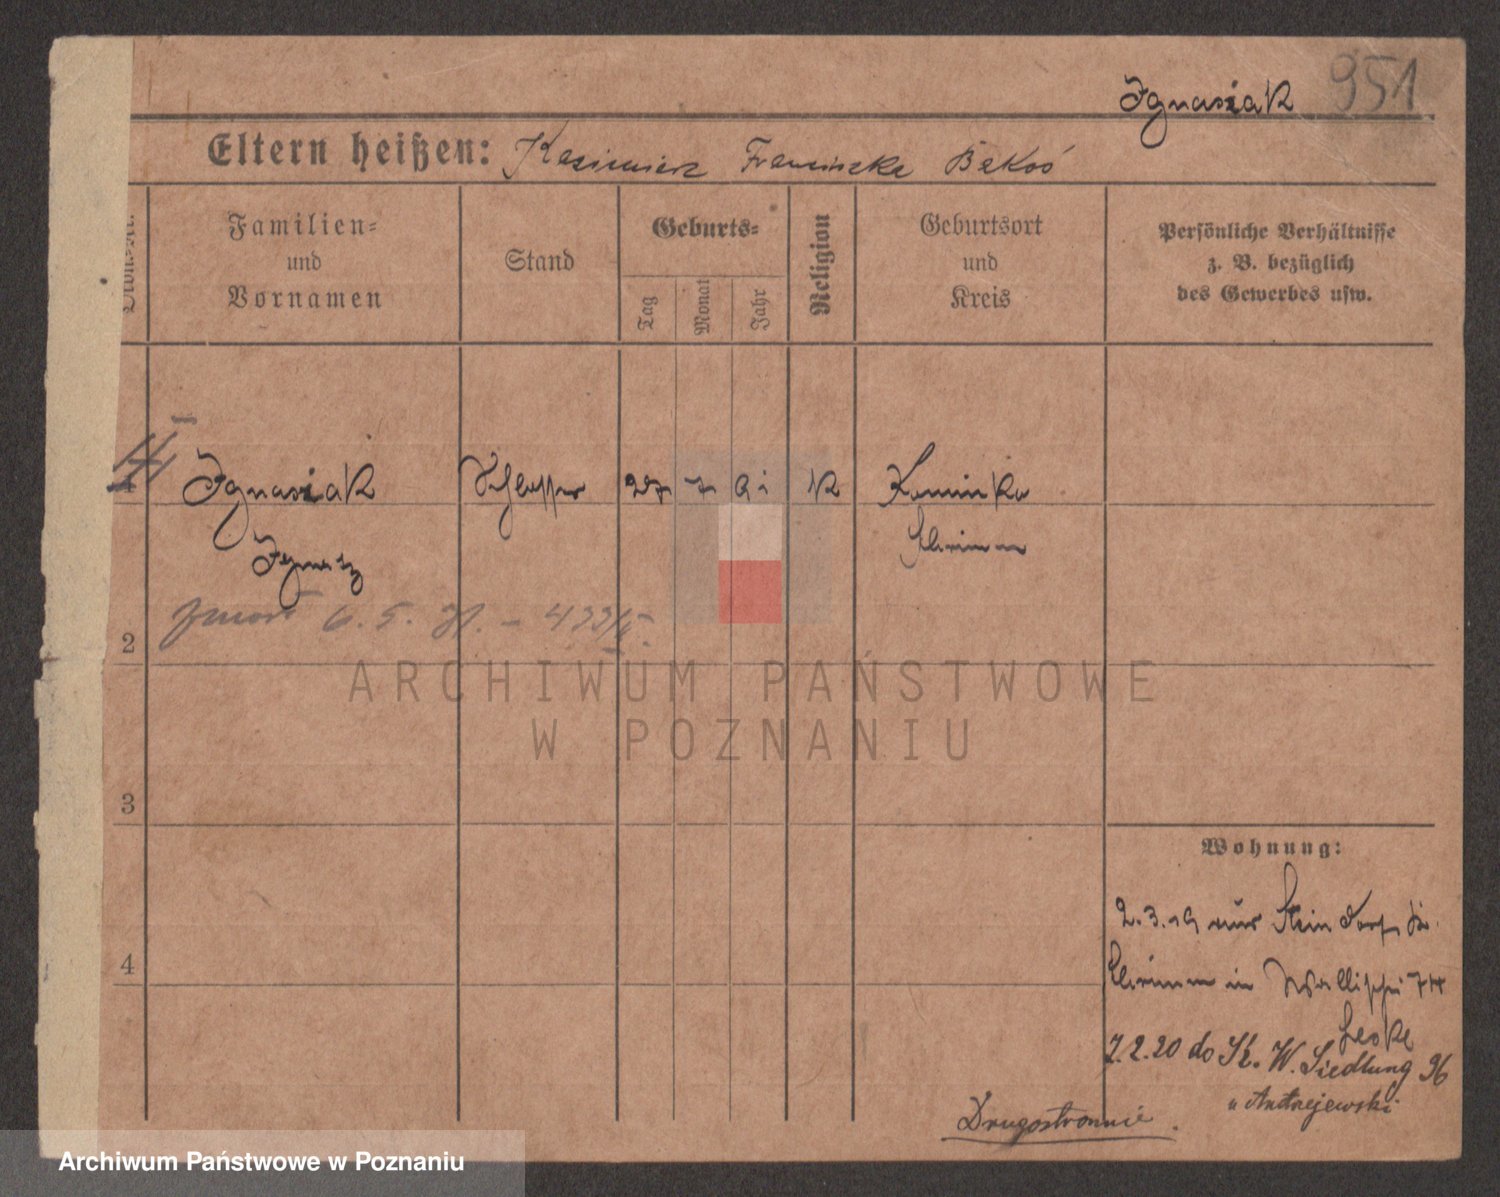 Ignasiak 951
Eltern heißen: Kazimierz Franciszka Bąkoś
Familien=
und
Vornamen
Stand
Geburts=
Tag
Monat
Jahr
Religion
Geburtsort
und
Kreis
Persönliche Verhältnisse
z. B. bezüglich
des Gewerbes usw.
1 Ignasiak Schlosser 27 7 91 K Kaminika
Schrimm
Ignatz
2
6. 5. 31. –
3
Wohnung:
2.3.19 aus Steindorf Kr.
4
Schrimm in Wallischei 74
Leske
7.2.20 do Sk. W. Siedlung 96
u Andrzejewski
Drugostronnie.
ARCHIWUM PAŃSTWOWE
W POZNANIU
Archiwum Państwowe w Poznaniu